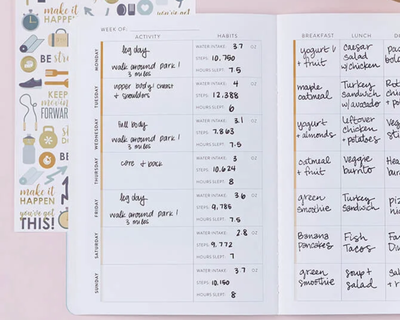 make it
HAPPEN
BE STRO
KEEP
moving
FORWARD
BE
make it
HAPPEN
you've got
THIS!
WEEK OF:
ACTIVITY
HABITS
MONDAY
leg day
walk around park!
3 miles
WATER INTAKE: 3.7 OZ
STEPS: 10,750
HOURS SLEPT: 7.5
TUESDAY
upper body/core
+ shoulders
WATER INTAKE: 4 OZ
STEPS: 12,388
HOURS SLEPT: 6
WEDNESDAY
full body
walk around park!
3 miles
WATER INTAKE: 3.1 OZ
STEPS: 7,863
HOURS SLEPT: 7.5
THURSDAY
core + back
WATER INTAKE: 3 OZ
STEPS: 10,624
HOURS SLEPT: 8
FRIDAY
leg day
walk around park!
3 miles
WATER INTAKE: 3.6 OZ
STEPS: 9,785
HOURS SLEPT: 7.5
SATURDAY
WATER INTAKE: 2.8 OZ
STEPS: 9,772
HOURS SLEPT: 7
SUNDAY
WATER INTAKE: 3.7 OZ
STEPS: 10,150
HOURS SLEPT: 8
BREAKFAST
LUNCH
yogurt
+ fruit
caesar
salad
w/chicken
maple
oatmeal
Turkey
Sandwich
w/avocado
yogurt
+ almonds
leftover
chicken
+ potatoes
oatmeal
+ fruit
Veggie
burrito
green
smoothie
Turkey
Sandwich
Banana
pancakes
Fish
Tacos
green
smoothie
soup +
salad